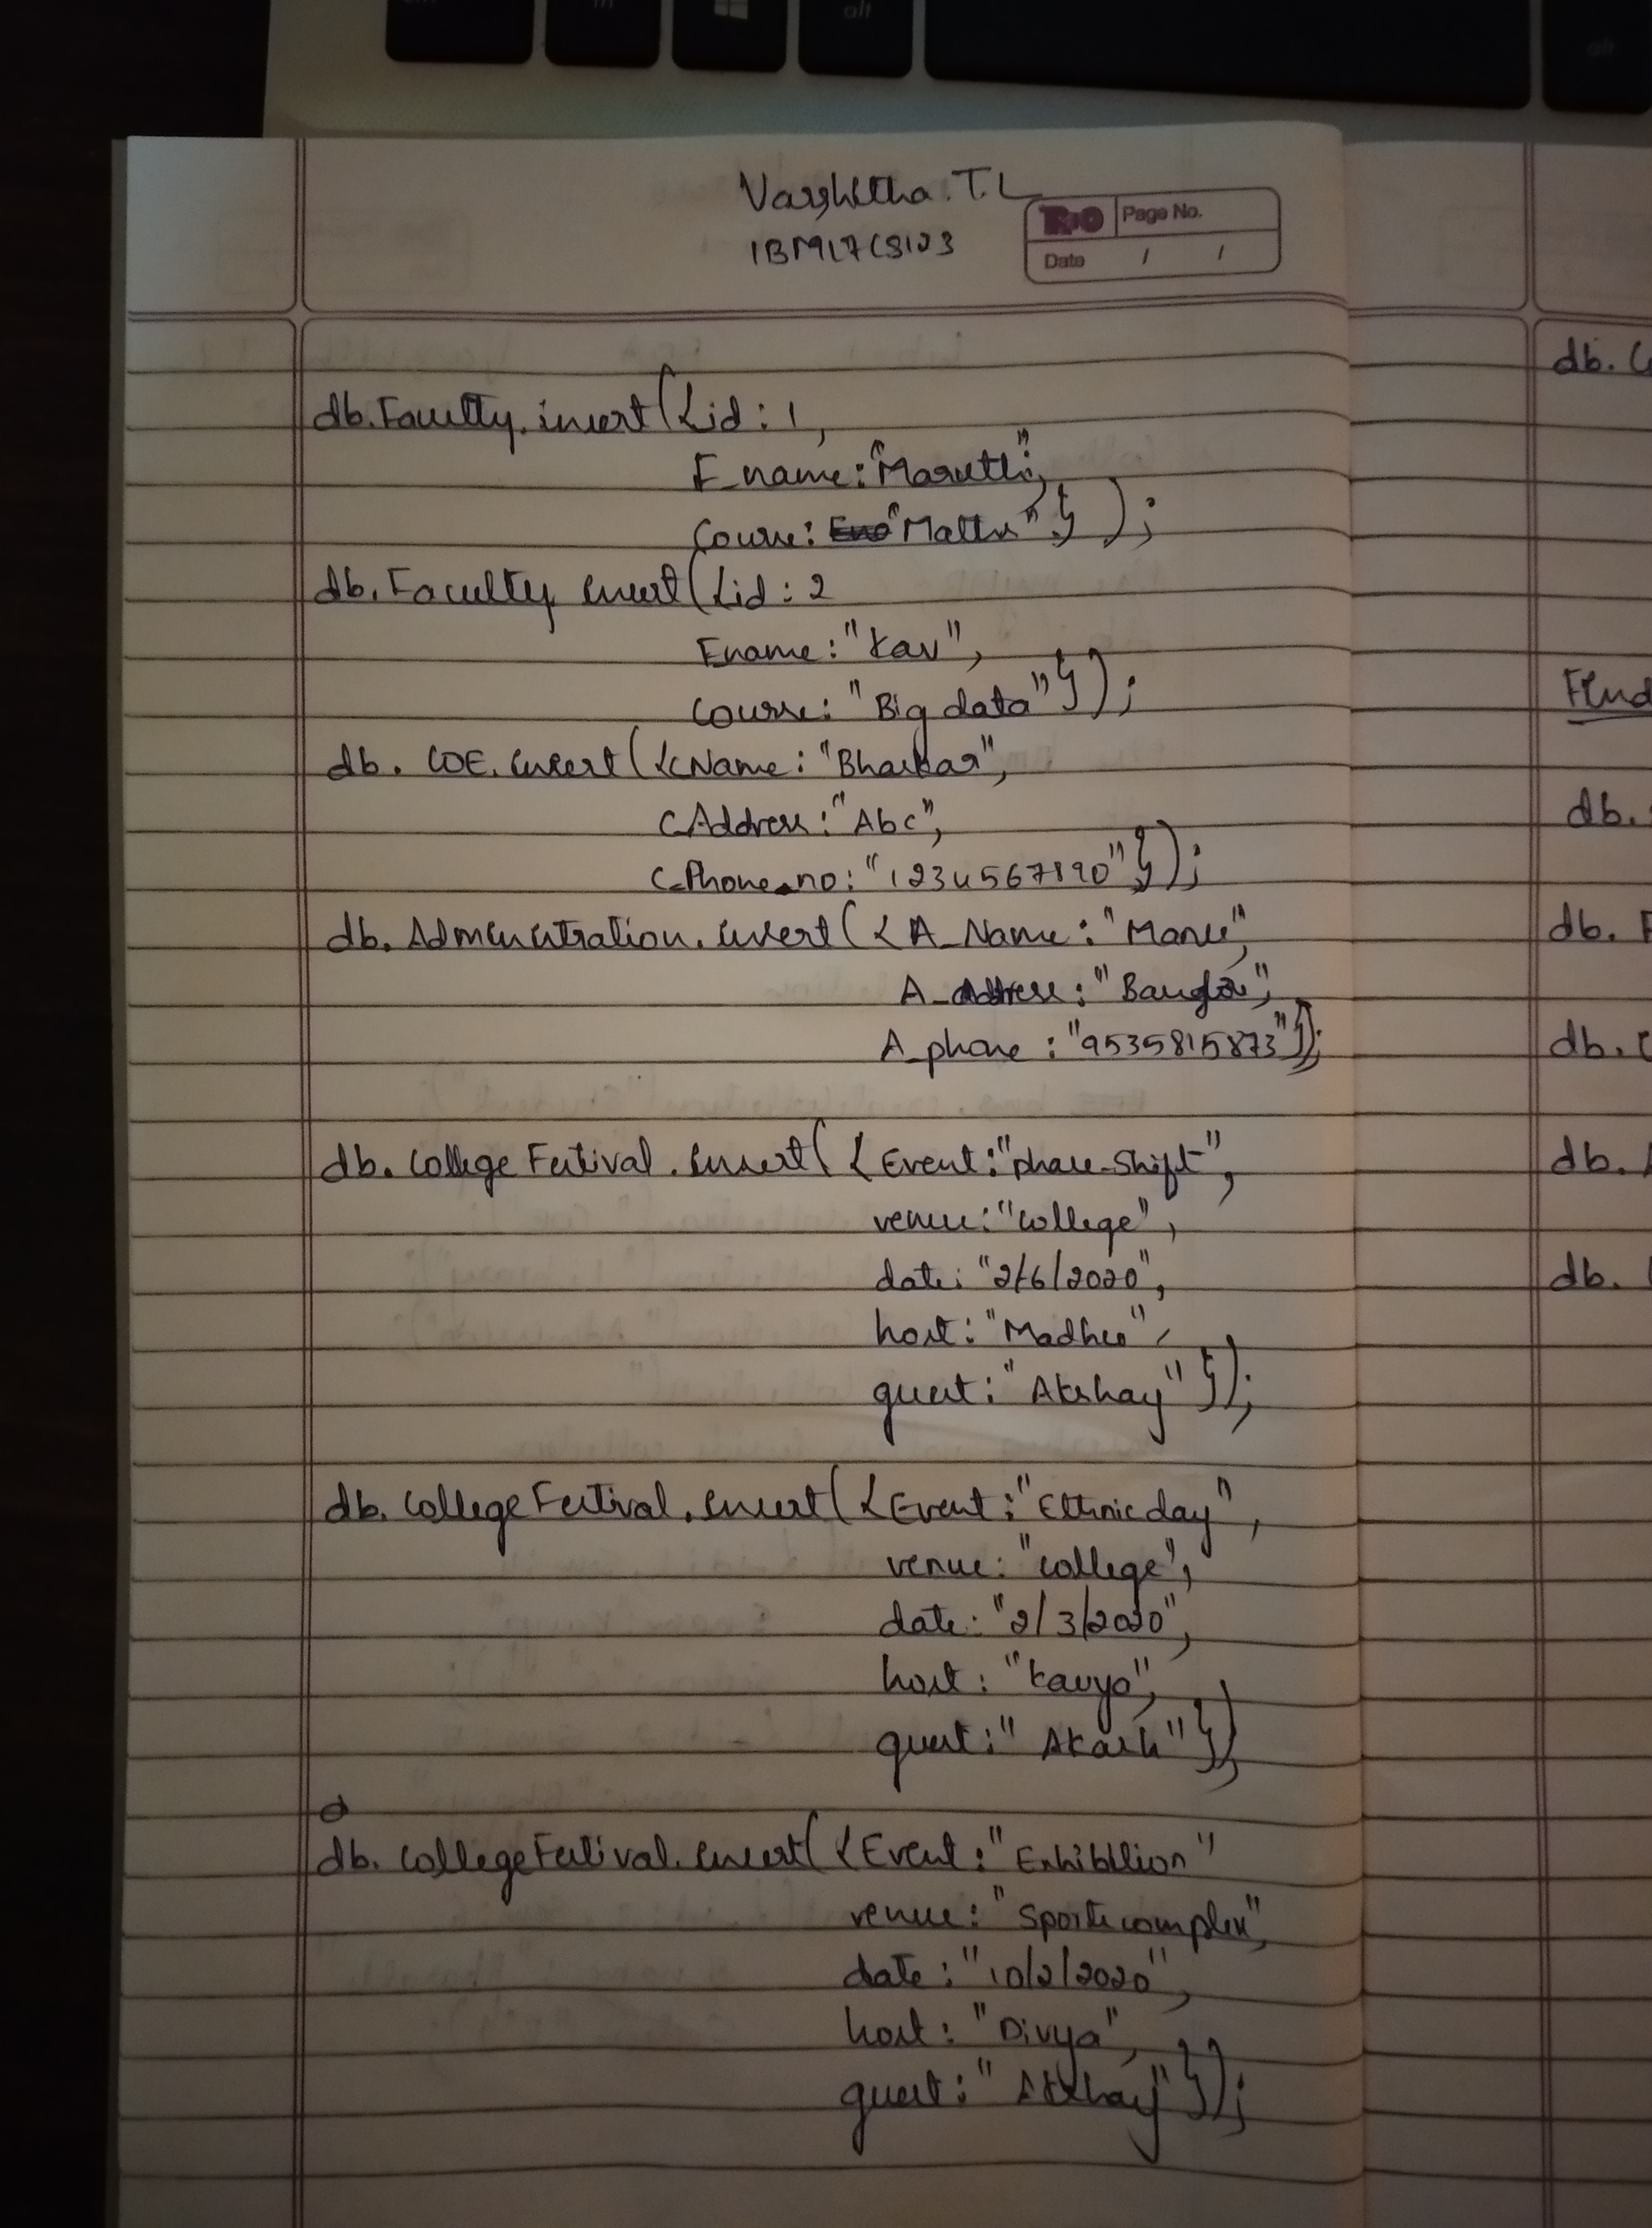 alt
alt
Varshitha. T. L
1BM17CS123
RIO
Page No.
Date / /
db.Faculty.insert({id: 1,
F_name:"Maruthi",
Course: "Maths"});
db.Faculty insert({id: 2
Fname: "Kav",
Course: "Big data"});
db. COE. insert({CName: "Bhaskar",
C_Address: "Abc",
C_Phone_no: "1234567890"});
db. Administration. insert({A_Name: "Manu",
A_address: "Banglor",
A_phone : "9535815873"});
db. College Festival. insert({Event: "phase-Shift",
venue: "college",
date: "2/6/2020",
host: "Madhu",
guest: "Akshay"});
db. College Festival. insert({Event: "Ethnic day",
venue: "college",
date: "2/3/2020",
host: "Kavya",
guest: "Akash"});
db. College Festival. insert({Event: "Exhibition"
venue: "Sports complex",
date: "10/2/2020",
host: "Divya",
guest: "Akshay"});
db. C
Find
db.
db. F
db. C
db. A
db.